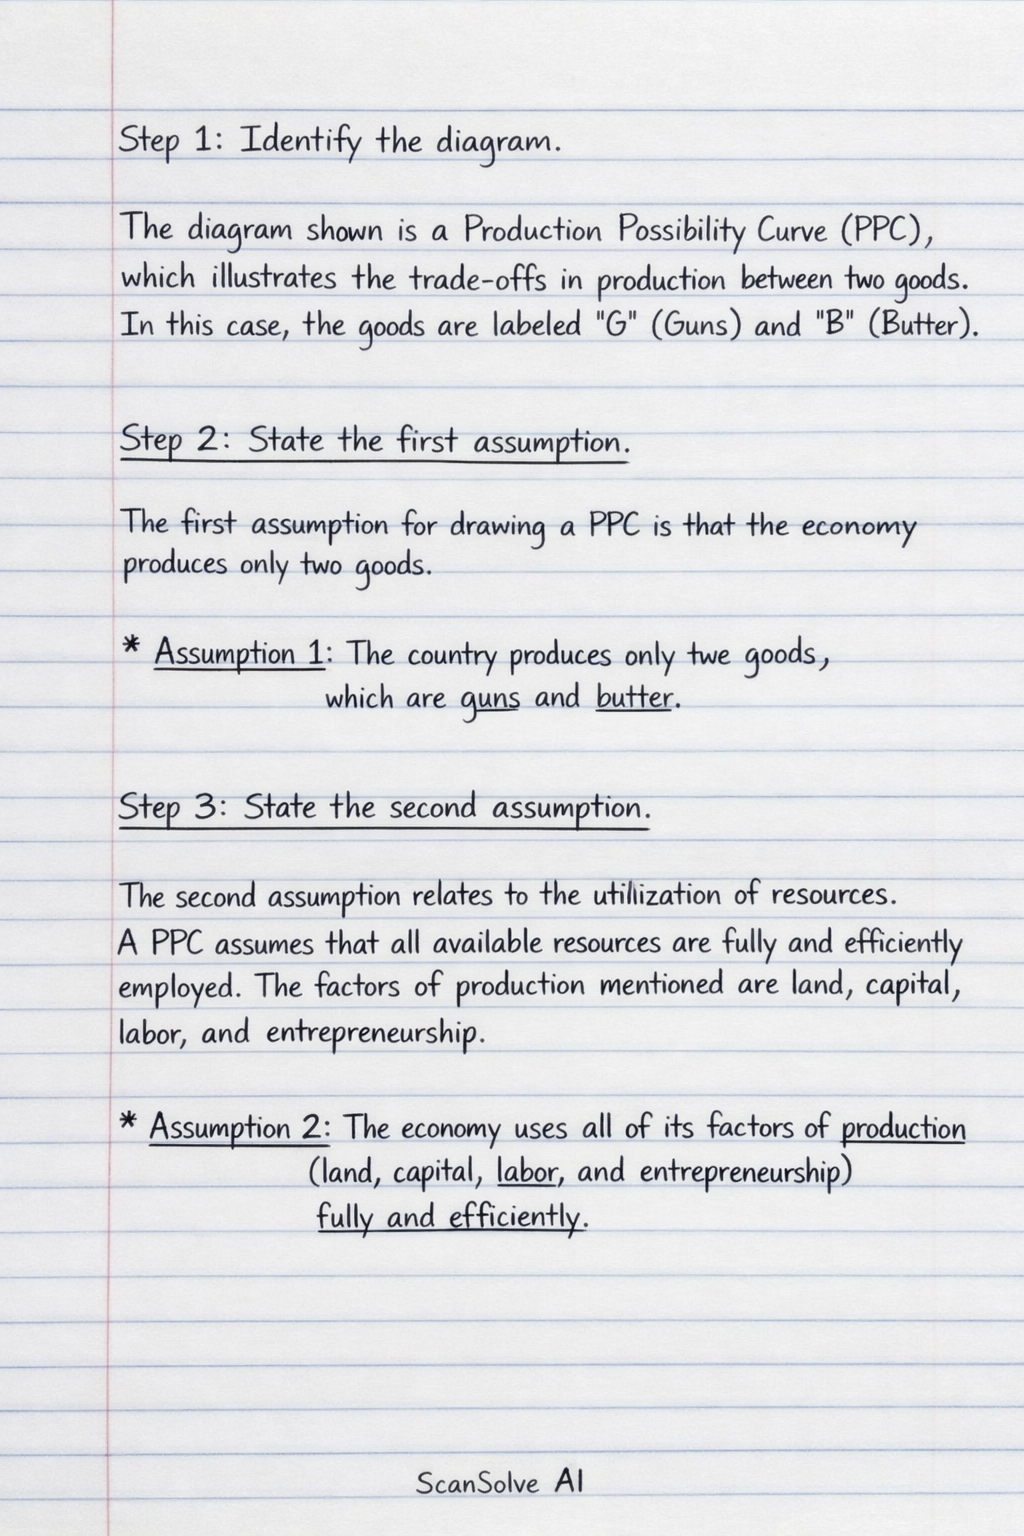 Step 1: Identify the diagram.
The diagram shown is a Production Possibility Curve (PPC),
which illustrates the trade-offs in production between two goods.
In this case, the goods are labeled "G" (Guns) and "B" (Butter).
Step 2: State the first assumption.
The first assumption for drawing a PPC is that the economy
produces only two goods.
* Assumption 1: The country produces only twe goods,
which are guns and butter.
Step 3: State the second assumption.
The second assumption relates to the utillization of resources.
A PPC assumes that all available resources are fully and efficiently
employed. The factors of production mentioned are land, capital,
labor, and entrepreneurship.
* Assumption 2: The economy uses all of its factors of production
(land, capital, labor, and entrepreneurship)
fully and efficiently.
ScanSolve AI